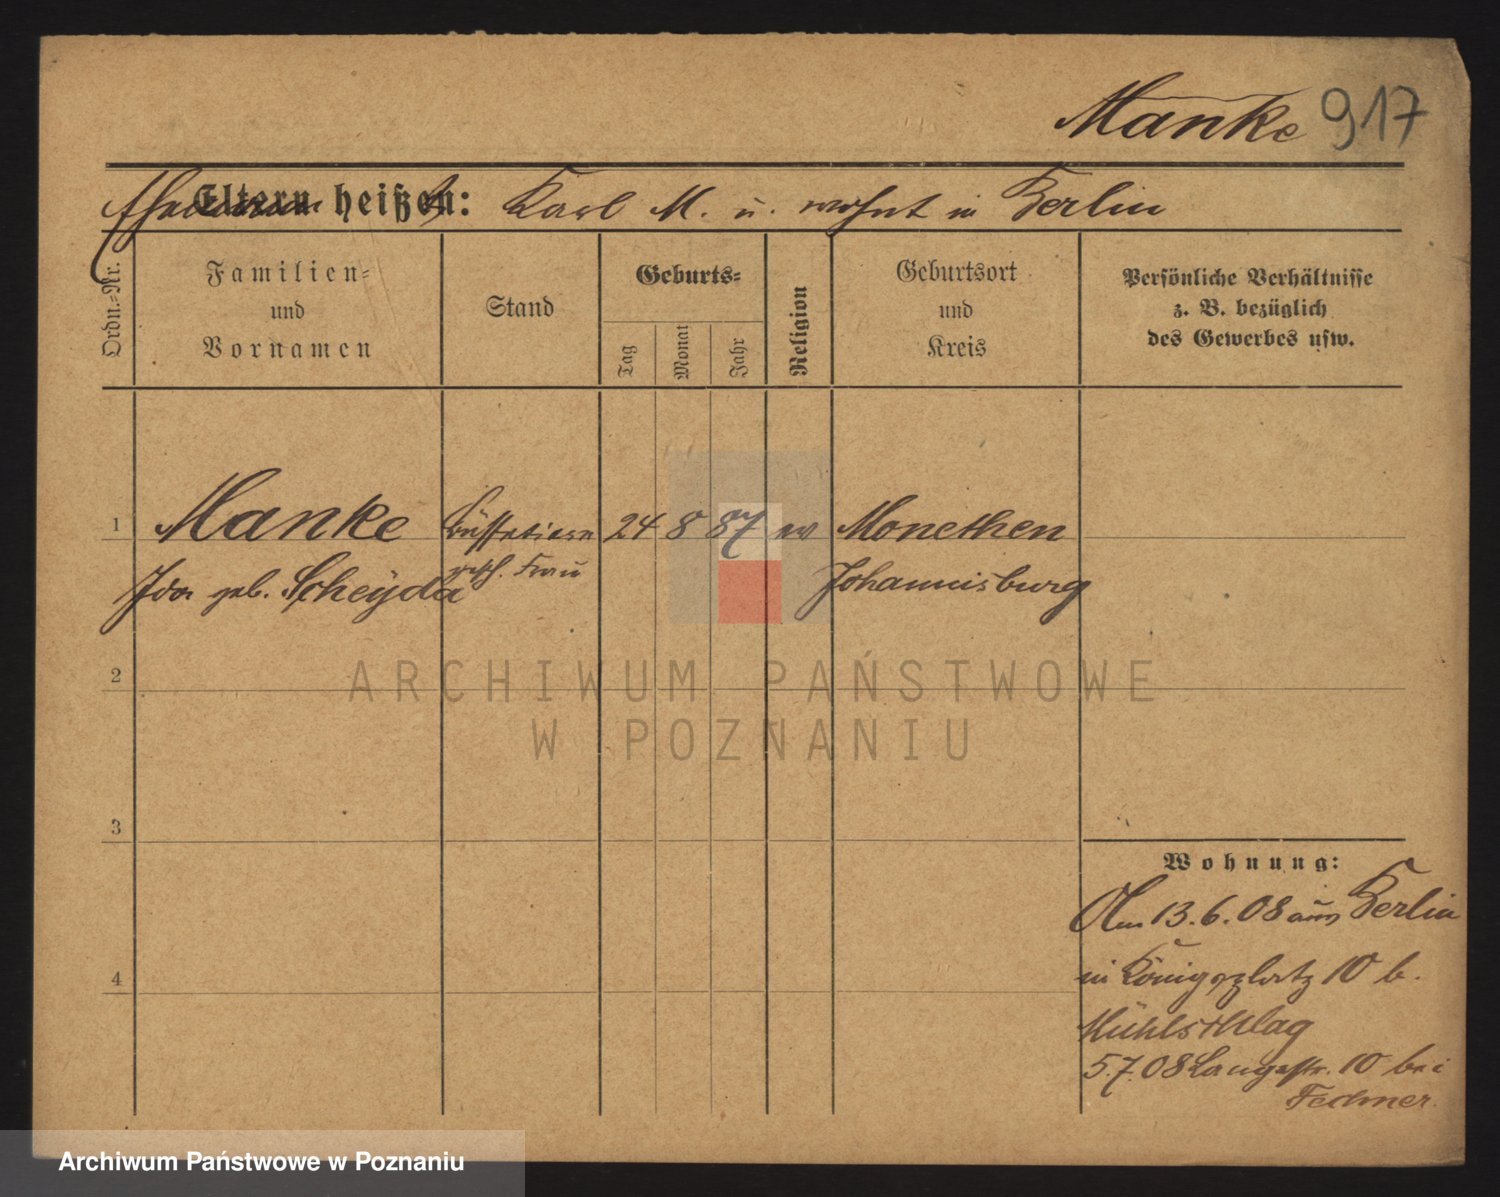 Manke 917
Ehemann heißt: Karl M. u. wohnt in Berlin
Eltern heißen:
Ordn.-Nr.
Familien-
und
Vornamen
Stand
Geburts-
Tag
Monat
Jahr
Religion
Geburtsort
und
Kreis
Persönliche Verhältnisse
z. B. bezüglich
des Gewerbes usw.
1 Manke Büffetiere 24 8 87 ev Monethen
Ida geb. Scheyda gesch. Frau Johannisburg
2
3
4
Wohnung:
Am 13.6.08 aus Berlin
in Königsplatz 10 b.
Mühlschlag
5.7.08 Langestr. 10 bei
Fechner.
ARCHIWUM PAŃSTWOWE
W POZNANIU
Archiwum Państwowe w Poznaniu